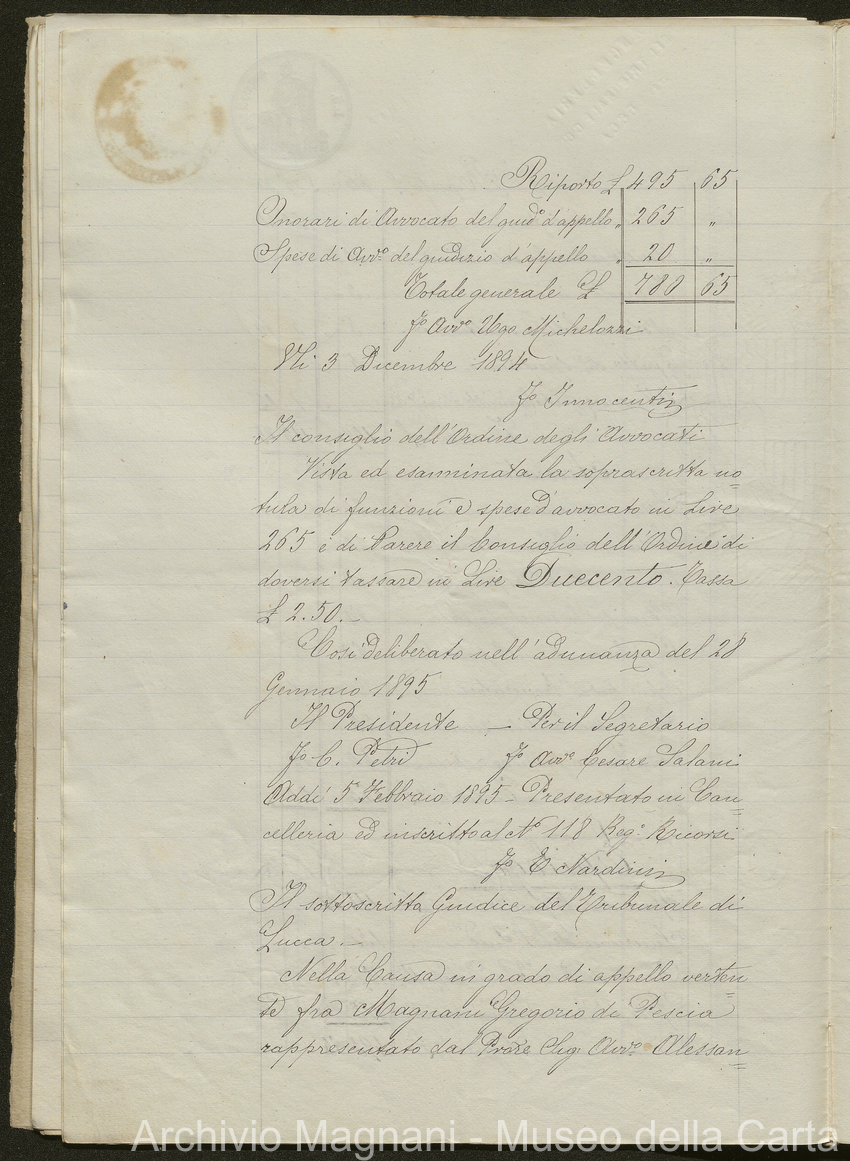 Riporto £ 495 65
Onorari di Avvocato del giud.° d'appello „ 265 „
Spese di Avv.° del giudizio d'appello „ 20 „
Totale generale £ 780 65
F° Avv° Ugo Michelozzi
Li 3 Dicembre 1894
F° Innocenti
Il consiglio dell'Ordine degli Avvocati
Vista ed esaminata la soprascritta no=
tula di funzioni e spese d'avvocato in Lire
265 è di Parere il Consiglio dell'Ordine di
doversi tassare in Lire Duecento. Tassa
£ 2.50.-
Così deliberato nell'adunanza del 28
Gennaio 1895
Il Presidente - Per il Segretario
F° C. Petri F° Avv° Cesare Salani
Addì 5 Febbraio 1895 - Presentato in Can=
celleria ed inscritto al N° 118 Reg.° Ricorsi
F° E Nardini
Il sottoscritto Giudice del Tribunale di
Lucca.-
Nella Causa in grado di appello verten=
te fra Magnani Gregorio di Pescia
rappresentato dal Proc.re Sig. Avv.° Alessan=
Archivio Magnani - Museo della Carta